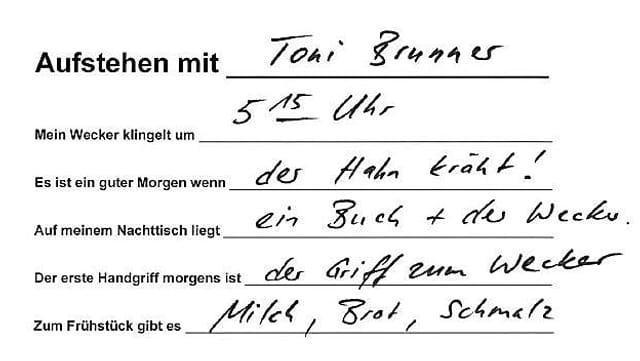 Aufstehen mit Toni Brunner
Mein Wecker klingelt um 5 15 Uhr
Es ist ein guter Morgen wenn der Hahn kräht!
Auf meinem Nachttisch liegt ein Buch + der Wecker.
Der erste Handgriff morgens ist der Griff zum Wecker
Zum Frühstück gibt es Milch, Brot, Schmalz